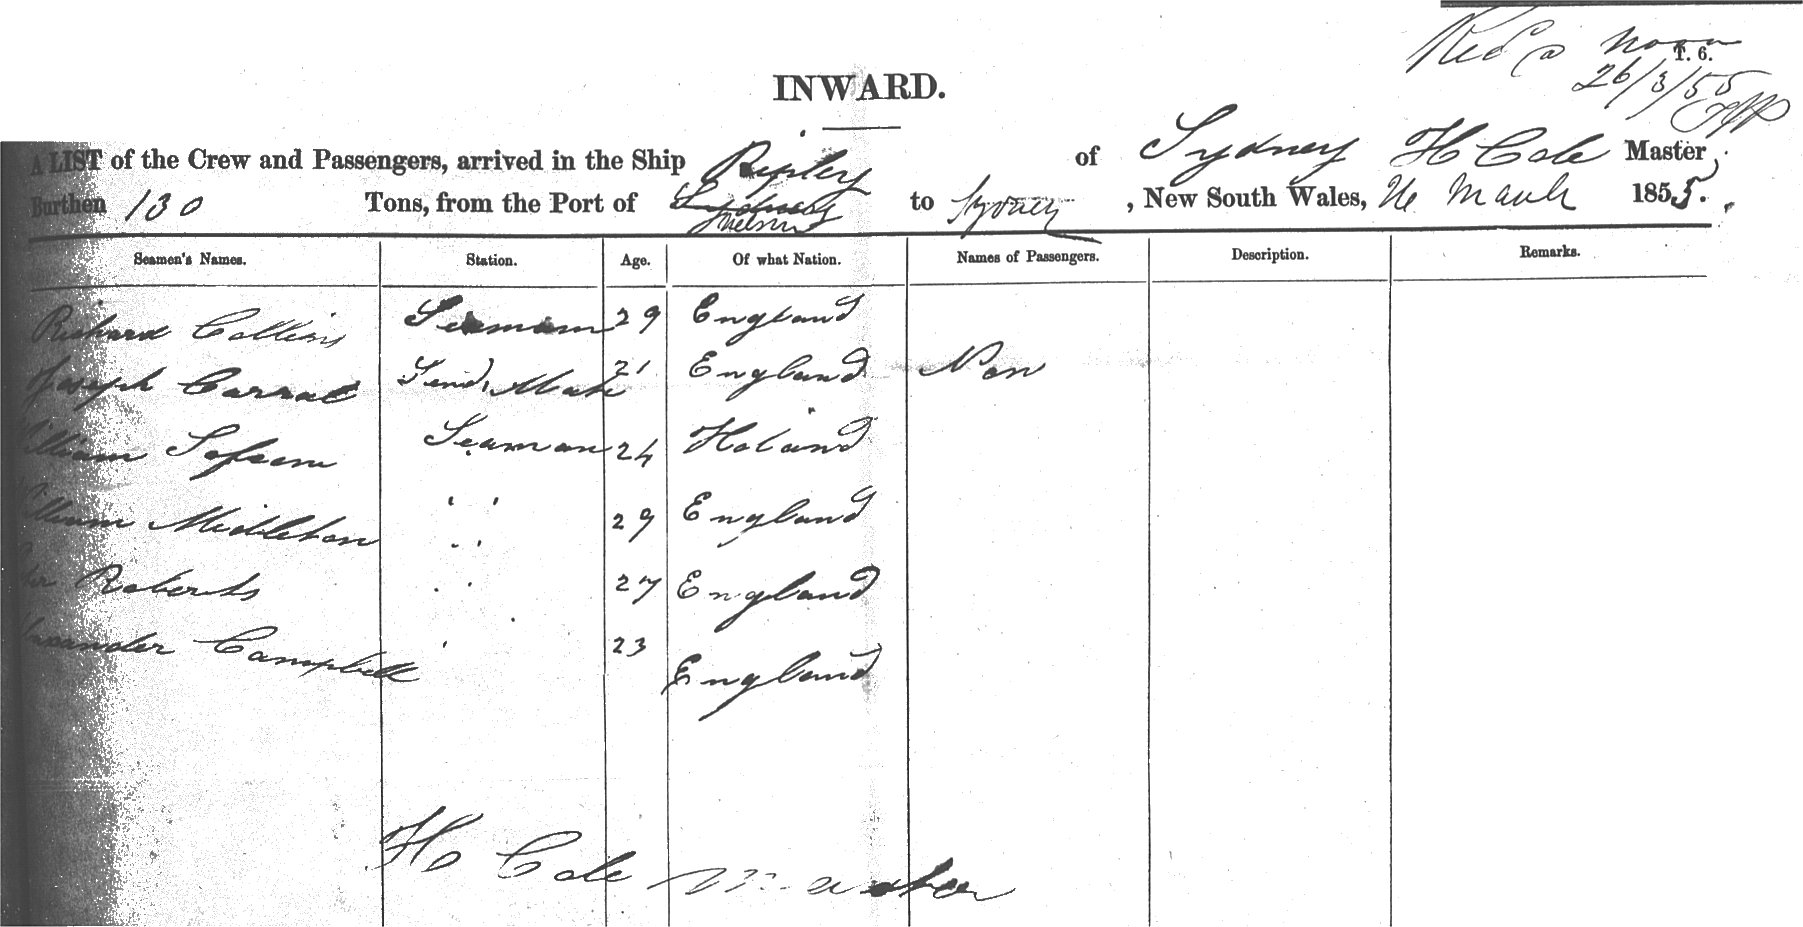 Recd @ noon
T. 6.
26/3/55
INWARD.
A LIST of the Crew and Passengers, arrived in the Ship Ripley of Sydney H Cole Master,
Burthen 130 Tons, from the Port of Nelson to Sydney, New South Wales, 26 March 1855.
Seamen's Names. Station. Age. Of what Nation. Names of Passengers. Description. Remarks.
Richard Collins Seaman 29 England
Joseph Carral Send, Mate 21 England Non
William Seaman 24 Holand
William Middleton " 29 England
Roberts " 27 England
Alexander Campbell " 23 England
H Cole Master